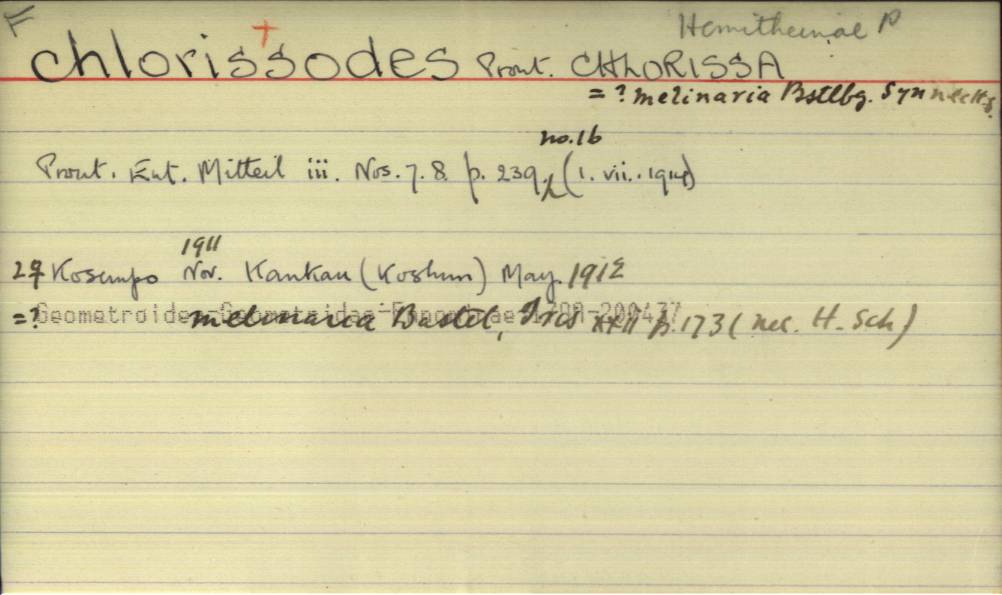 Hemitheinae P
chlorissodes Prout. CHLORISSA
= ? melinaria Bstlbg. Syn nec Hs.
no. 16
Prout. Ent. Mitteil iii. Nos. 7. 8. p. 239, (1. vii. 1914)
1911
Kosempo Nov. Kankau (Koshun) May. 1912
=? melinaria Bastel, Iris XXII p. 173 (nec. H-Sch)
Geometroidea-Geometridae-